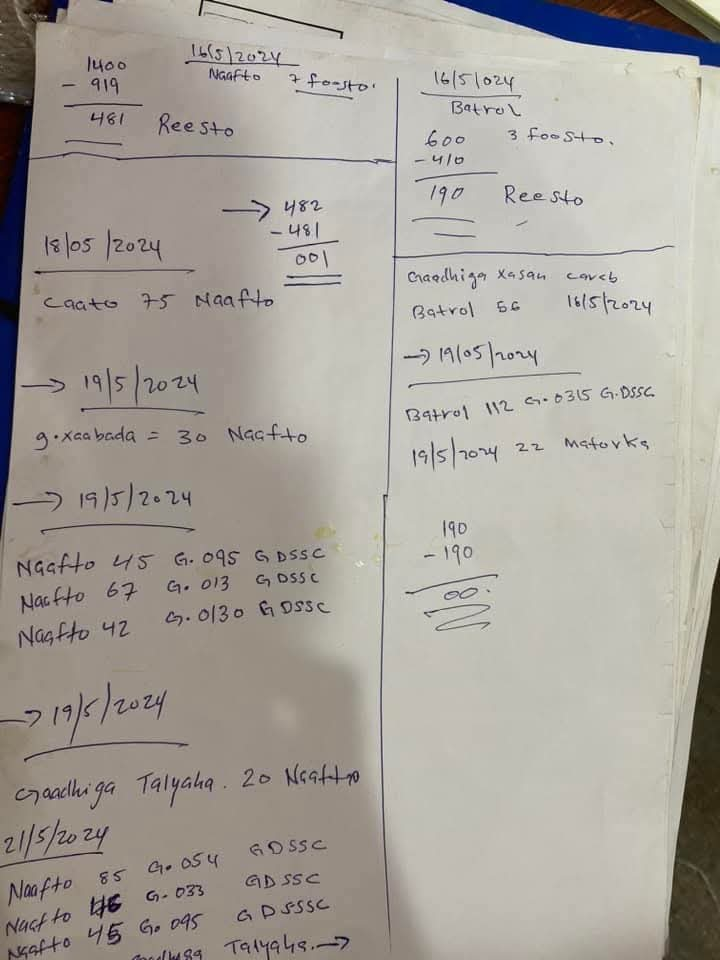 1400
- 919
481 Reesto
16/5/2024
Naafto 7 foosto.
482
- 481
001
18/05/2024
Caato 75 Naafto
19/5/2024
g.xaabada = 30 Naafto
19/5/2024
Naafto 45 G.095 GDSSC
Naafto 67 G.013 GDSSC
Naafto 42 G.0130 GDSSC
19/5/2024
Gaadhiga Talyaha. 20 Naafto
21/5/2024
Naafto 85 G.054 GDSSC
Naafto 46 G.033 GDSSC
Naafto 45 G.095 GDSSSC
Talyaha.
16/5/024
Batrol
600 3 foosto.
- 410
190 Reesto
Gaadhiga Xasan careb
Batrol 56 16/5/2024
19/05/2024
Batrol 112 G.0315 G.DSSC
19/5/2024 22 Matorka
190
- 190
00.